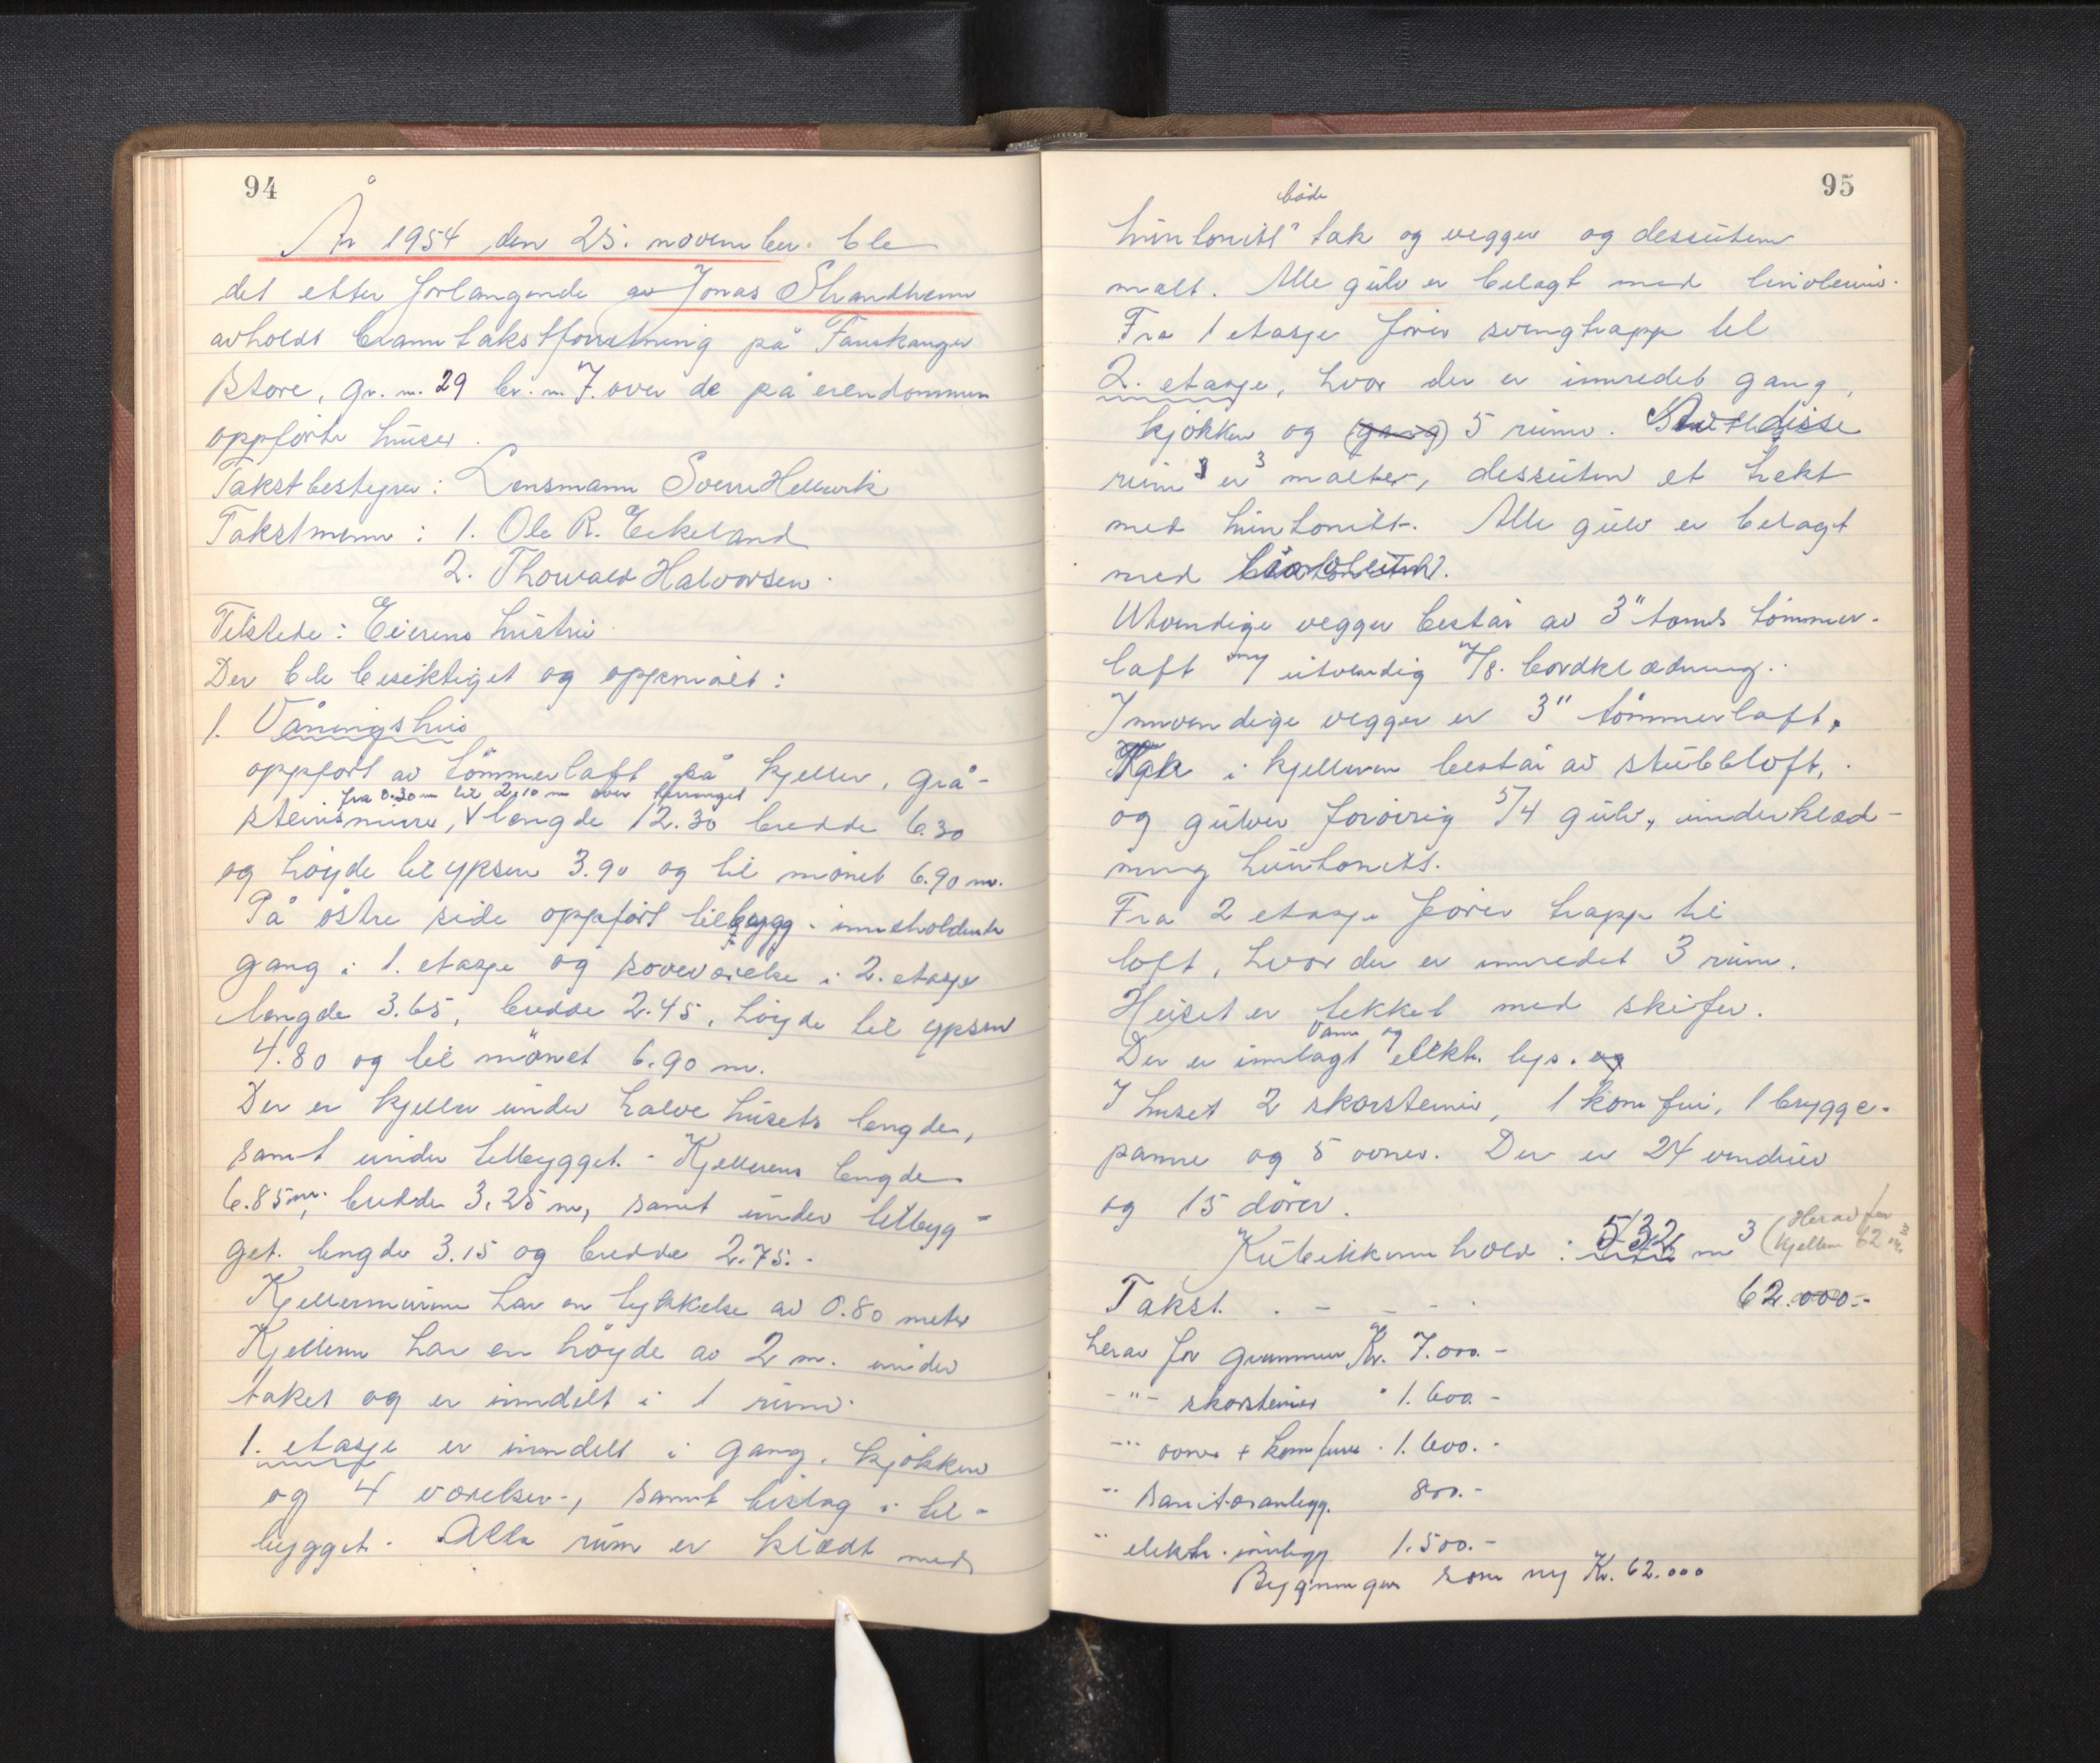 94
År 1954 den 25. november ble
det etter forlangende av Jonas Strandheim
avholdt branntakstforretning på Fanskanger
Store, gr. n. 29 br. n. 7. over de på eiendommen
oppførte huser.
Takstbestyrer: Lensmann Sverre Hellevik
Takstmenn: 1. Ole R. Eikeland
2. Thorvald Halvorsen.
Tilstede: Eierens hustru.
Der ble besiktiget og oppmålt:
1. Våningshus
oppført av tömmerlaft på kjeller, grå-
fra 0.30 m til 2.10 m over terrenget
steinsmurer, v lengde 12.30 bredde 6.30
og høyde til ypsen 3.90 og til mönet 6.90 m.
På östre side oppført tilbygg inneholdende
gang i 1. etasje og soveværelse i 2. etasje
lengde 3.65, bredde 2.45, høyde til ypsen
4.80 og til mönet 6.90 m.
Der er kjeller under halve husets lengde,
samt under tilbygget. - Kjellerens lengde
6.85 m, bredde 3.25 m, samt under tilbyg-
get. lengde 3.15 og bredde 2.75. -
Kjellermurene har en tykkelse av 0.80 meter
Kjelleren har en høyde av 2 m. under
taket og er inndelt i 1 rum.
1. etasje er inndelt i gang, kjøkken
og 4 værelser, samt bislag i til-
bygget. Alle rum er kledt med
95
både
huntonitt tak og vegger og dessuten
malt. Alle gulv er belagt med linoleum.
Fra 1 etasje fører svingtrapp til
2. etasje, hvor der er innredet gang,
kjøkken og (gang) 5 rum. disse
rum er 3 malte, dessuten et trekt
med huntonitt. Alle gulv er belagt
med
Utvendige vegger består av 3" toms tömmer-
laft og utvendig 7/8. bordklædning.
Innvendige vegger er 3" tömmerlaft.
Tak i kjelleren består av stubbloft,
og gulver forøvrig 5/4 gulv, underklæd-
ning huntonitt.
Fra 2 etasje fører trapp til
loft, hvor der er innredet 3 rum.
Huset er tekket med skifer.
vann og
Der er innlagt elektr. lys. og
I huset 2 skorsteiner, 1 komfur, 1 brygge-
panne og 5 ovner. Der er 24 vinduer
og 15 dører.
Kubikkinnhold: 532 m3 (Herav for
kjelleren 62 m3
Takst. - - - 62.000.-
herav for grunnmur Kr. 7.000.-
-"- skorsteiner " 1.600.-
-"- ovner + komfurer . 1.600.-
-"- sanitæranlegg. 800.-
" elektr. innlegg 1.500.-
Bygningen som ny Kr. 62.000